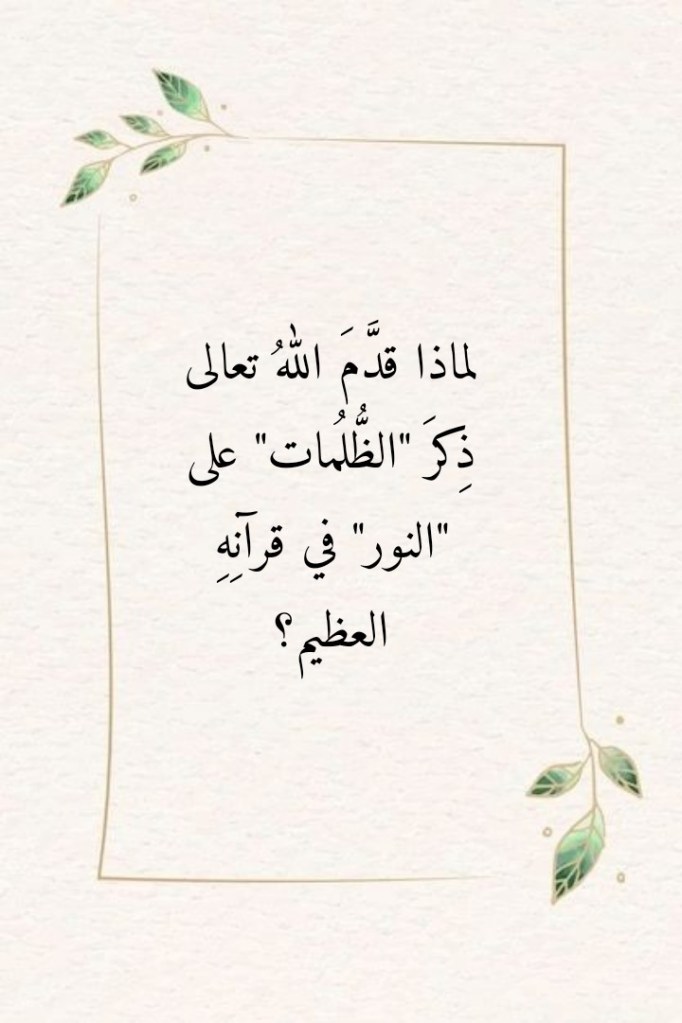 لماذا قدَّمَ اللهُ تعالى
ذِكرَ "الظُّلُمات" على
"النور" في قرآنِهِ
العظيم؟